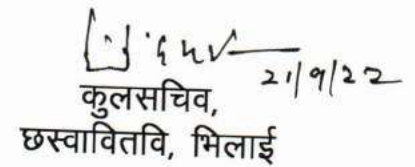 21/9/22
कुलसचिव,
छस्वावितवि, भिलाई